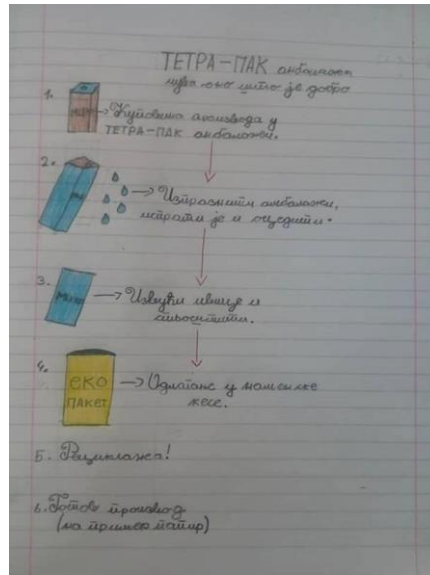 ТЕТРА-ПАК амбалажа
чува оно што је добро
1.
Куповина производа у
ТЕТРА-ПАК амбалажи.
2.
Испразнити амбалажу,
испрати је и оцедити.
3.
Извући ивице и
спљоштити.
4.
ЕКО
ПАКЕТ
Одлагање у
кесе.
5. Рециклажа!
6. Готов производ
(на пример папир)